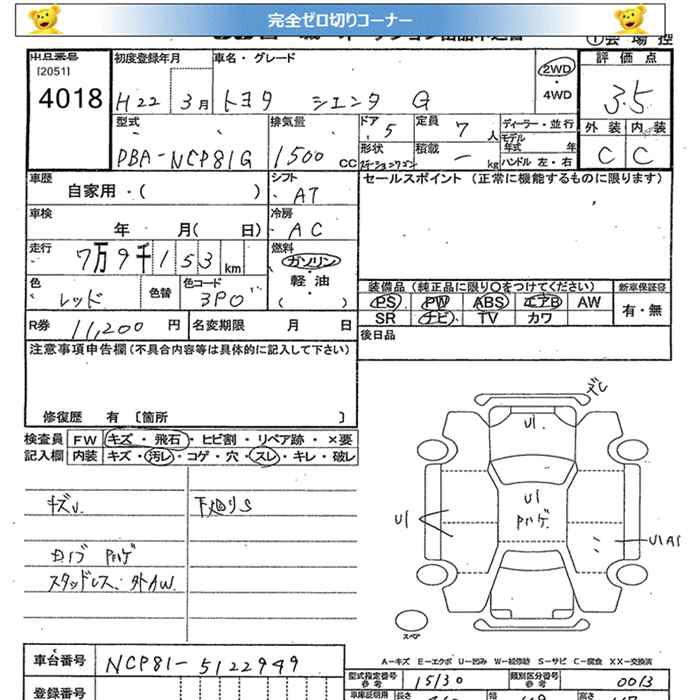 完全ゼロ切りコーナー
会場控
[2051]
4018
初度登録年月
H22 3月
車名・グレード
トヨタ シエンタ G
2WD
・
4WD
評価点
3.5
型式
DBA-NCP81G
排気量
1500 CC
ドア
5
定員
7 人
ディーラー・並行
モデル
年式 年
外装 内装
C C
形状
ステーションワゴン
積載
― kg
ハンドル 左・右
車歴
自家用・( )
シフト
AT
セールスポイント (正常に機能するものに限ります)
車検
年 月( 日)
冷房
AC
走行
7万9千153km
燃料
ガソリン
軽油
( ・ )
色
レッド
色替
色コード
3P0
装備品 (純正品に限り○をつけてください)
新車保証書
PS PW ABS エアB AW
SR ナビ TV カワ
有・無
R券 11,200 円
名変期限 月 日
後日品
注意事項申告欄 (不具合内容等は具体的に記入して下さい)
修復歴 有 [箇所 ]
検査員 FW キズ・飛石・ヒビ割・リペア跡・×要
記入欄 内装 キズ・汚レ・コゲ・穴・スレ・キレ・破レ
キズU.
下廻りS
スタッドレス、外AW.
U1
U1
U1
U1A1
スペア
A-キズ E-エクボ U-凹み W-板修跡 S-サビ C-腐食 XX-交換済
車台番号 NCP81-5122949
型式指定番号
参考
15130
類別区分番号
参考
0013
登録番号
車庫証明用
長さ
幅
高さ